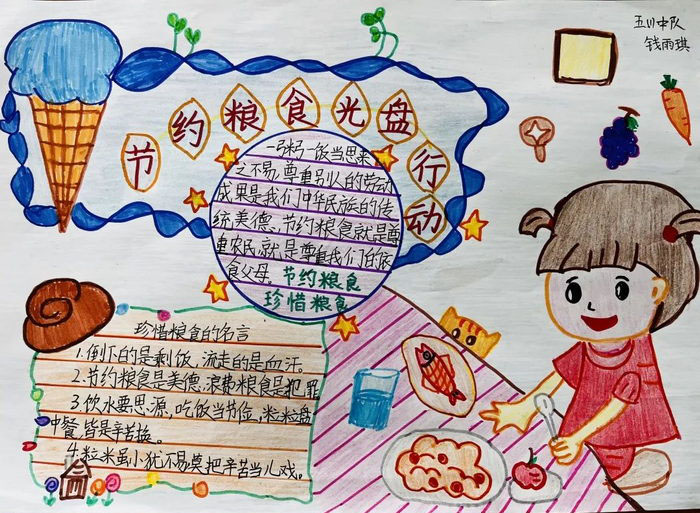 五川中队
钱雨琪
节约粮食光盘行动
一粥一饭当思来
之不易,尊重别人的劳动
成果是我们中华民族的传
统美德、节约粮食就是尊
重农民,就是尊重我们的衣
食父母。节约粮食
珍惜粮食
珍惜粮食的名言
1.倒下的是剩饭,流走的是血汗。
2.节约粮食是美德,浪费粮食是犯罪
3.饮水要思源,吃饭当节俭,粒粒盘
中餐,皆是辛苦换。
4.粒米虽小犹不易莫把辛苦当儿戏。